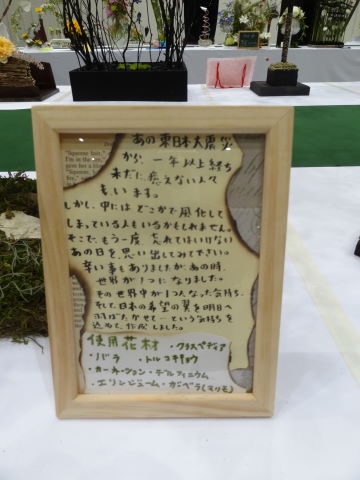 あの東日本大震災
から、一年以上経ち
未だに癒えない人々
もいます。
しかし、中にはどこかで風化して
しまっている人もいるかもしれません。
そこで、もう一度、忘れてはいけない
あの日を思い出してみて下さい。
辛い事もありましたが、あの時、
世界が1つになりました。
その世界中が1つになった気持ち、
そして日本の希望の翼を明日へ
羽ばたかせて…という気持ちを
込めて、作成しました。
使用花材 ・クラスペディア
・バラ ・トルコキキョウ
・カーネーション ・デルフィニウム
・エリンジューム ・ガーベラ(マリモ)